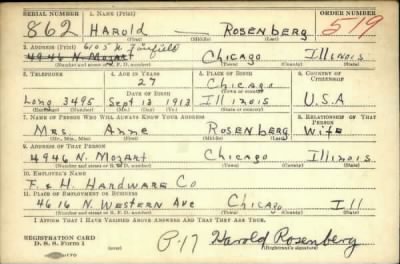 SERIAL NUMBER 1. NAME (Print) ORDER NUMBER
862 HAROLD — ROSENBERG 519
(First) (Middle) (Last)
2. ADDRESS (Print) 6105 N. Fairfield
4946 N. MOZART CHICAGO ILLINOIS
(Number and street or R. F. D. number) (Town) (County) (State)
3. TELEPHONE 4. AGE IN YEARS 5. PLACE OF BIRTH 6. COUNTRY OF CITIZENSHIP
27 CHICAGO
DATE OF BIRTH (Town or county)
LONG 3495 SEPT 13 1913 ILLINOIS U.S.A
(Exchange) (Number) (Mo.) (Day) (Yr.) (State or country)
7. NAME OF PERSON WHO WILL ALWAYS KNOW YOUR ADDRESS 8. RELATIONSHIP OF THAT PERSON
MRS. ANNE ROSENBERG WIFE
(Mr., Mrs., Miss) (First) (Middle) (Last)
9. ADDRESS OF THAT PERSON
4946 N. MOZART CHICAGO ILLINOIS
(Number and street or R. F. D. number) (Town) (County) (State)
10. EMPLOYER'S NAME
F. & H. HARDWARE CO
11. PLACE OF EMPLOYMENT OR BUSINESS
4616 N. WESTERN AVE CHICAGO ILL
(Number and street or R. F. D. number) (Town) (County) (State)
I AFFIRM THAT I HAVE VERIFIED ABOVE ANSWERS AND THAT THEY ARE TRUE.
REGISTRATION CARD
D. S. S. Form 1 P-17 Harold Rosenberg
(Registrant's signature)